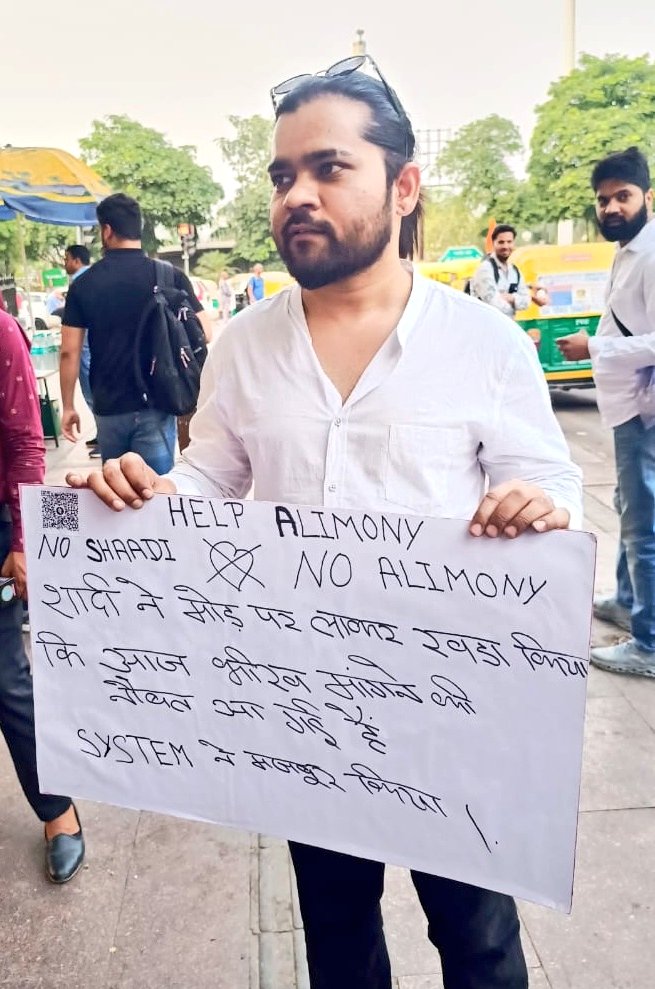 HELP ALIMONY
NO SHAADI NO ALIMONY
शादी ने मोड़ पर लाकर खडा किया
कि आज भीख मांगने की
नौबत आ गई हैं
SYSTEM ने मजबूर किया।